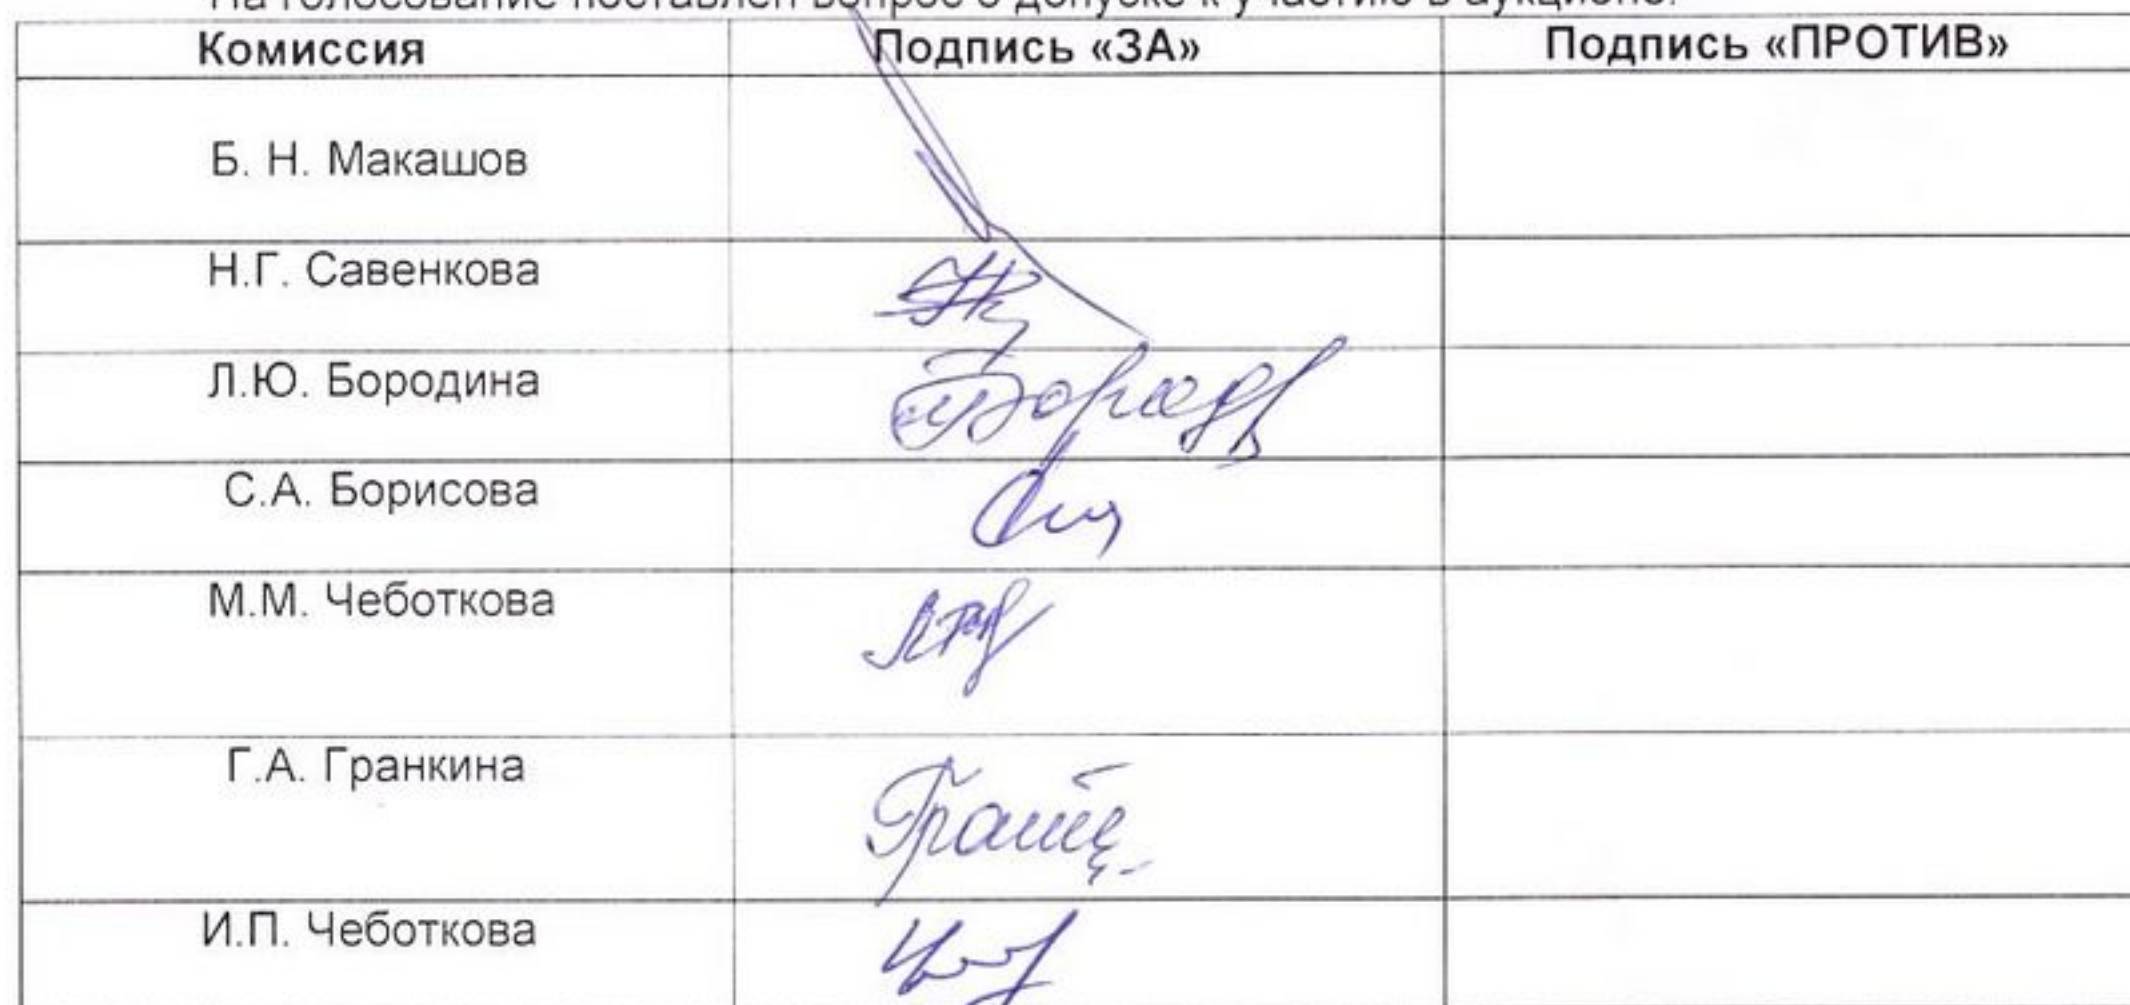 На голосование поставлен вопрос о допуске к участию в аукционе:
Комиссия Подпись «ЗА» Подпись «ПРОТИВ»
Б. Н. Макашов
Н.Г. Савенкова
Л.Ю. Бородина
С.А. Борисова
М.М. Чеботкова
Г.А. Гранкина
И.П. Чеботкова